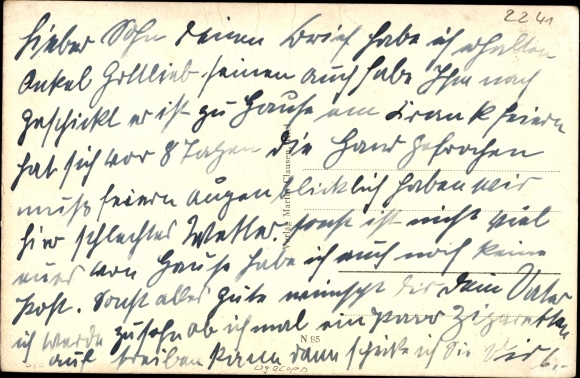 22 41
Lieber Sohn deinen Brief habe ich erhalten
Onkel Gottlieb seinen auch habe Ihm nach
geschickt er ist zu Hause am Krank feiern
hat sich vor 8 Tagen die Hand gebrochen
muß feiern augenblicklich haben wir
hier schlechtes Wetter. sonst ist nicht viel
von Hause habe ich auch noch keine
Post. Sonst alles gute wünscht dir dein Vater
ich werde zusehn ob ich mal ein paar Zigaretten
auf treiben kann dann schicke ich Sie Dir
Verlag Martin Clausen
N 95